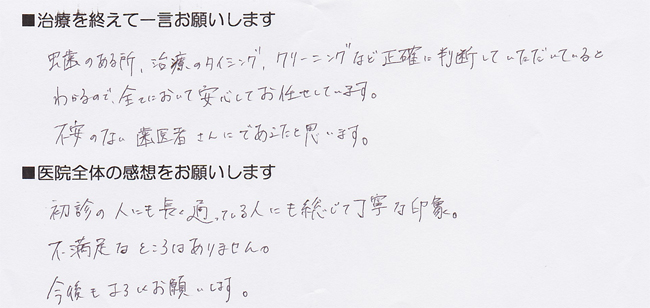 ■治療を終えて一言お願いします
虫歯のある所、治療のタイミング、クリーニングなど正確に判断していただいていると
わかるので、全てにおいて安心してお任せしています。
不安のない歯医者さんにであえたと思います。
■医院全体の感想をお願いします
初診の人にも長く通っている人にも総じて丁寧な印象。
不満足なところはありません。
今後もよろしくお願いします。